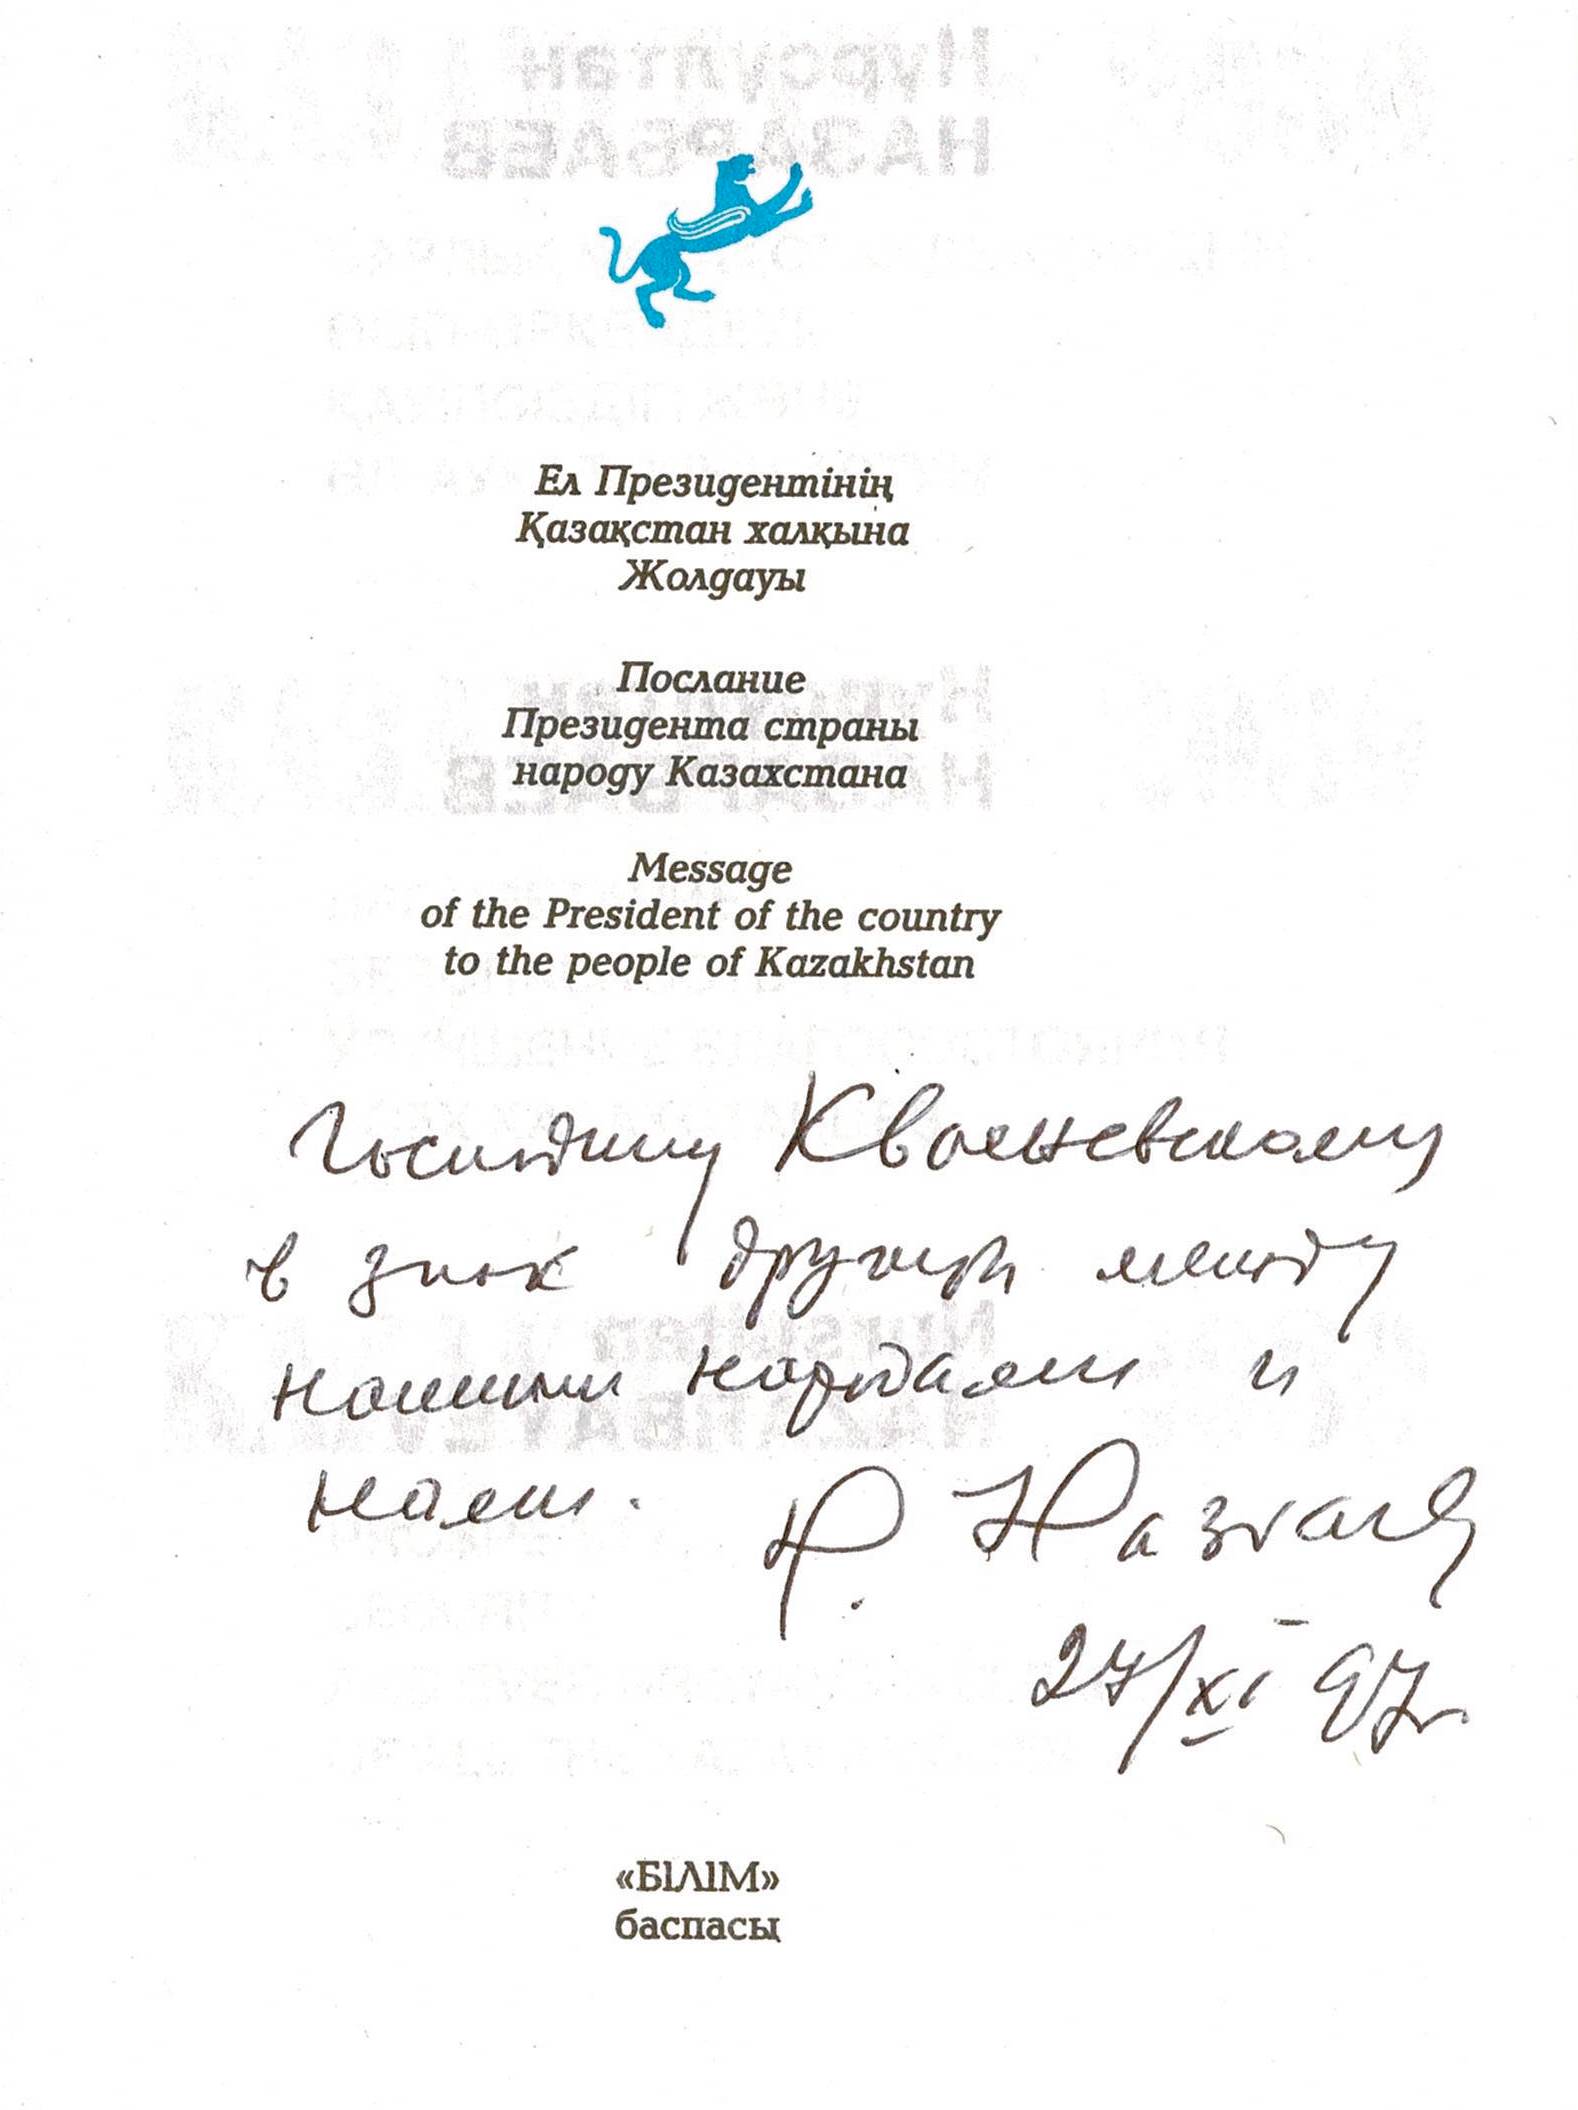 Ел Президентінің
Қазақстан халқына
Жолдауы
Послание
Президента страны
народу Казахстана
Message
of the President of the country
to the people of Kazakhstan
Господину Квасьневскому
в знак дружбы между
нашими народами и
нами. Н. Назарбаев
27/XI 97г.
«БІЛІМ»
баспасы